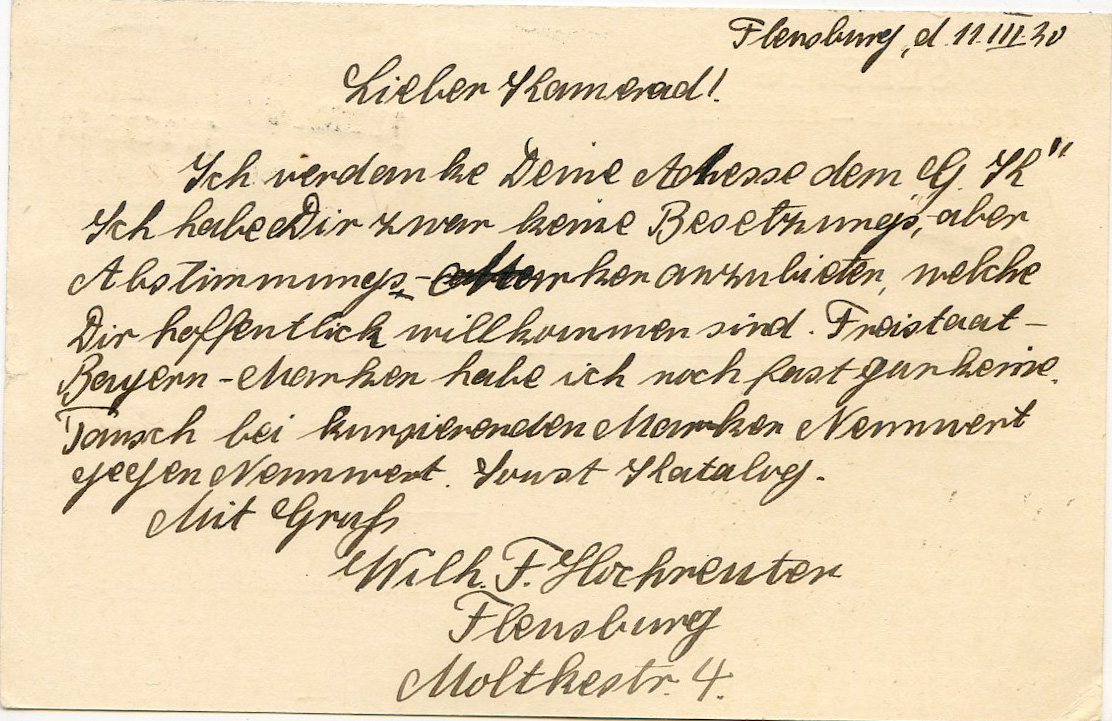 Flensburg, d. 11.III.20
Lieber Kamerad!
Ich verdanke Deine Adresse dem „G. K"
Ich habe Dir zwar keine Besetzungs-, aber
Abstimmungs-Marken anzubieten, welche
Dir hoffentlich willkommen sind. Freistaat-
Bayern-Marken habe ich noch fast gar keine.
Tausch bei kursierenden Marken Nennwert
gegen Nennwert. Sonst Katalog.
Mit Gruß
Wilh. F. Hochreuter
Flensburg
Moltkestr. 4.